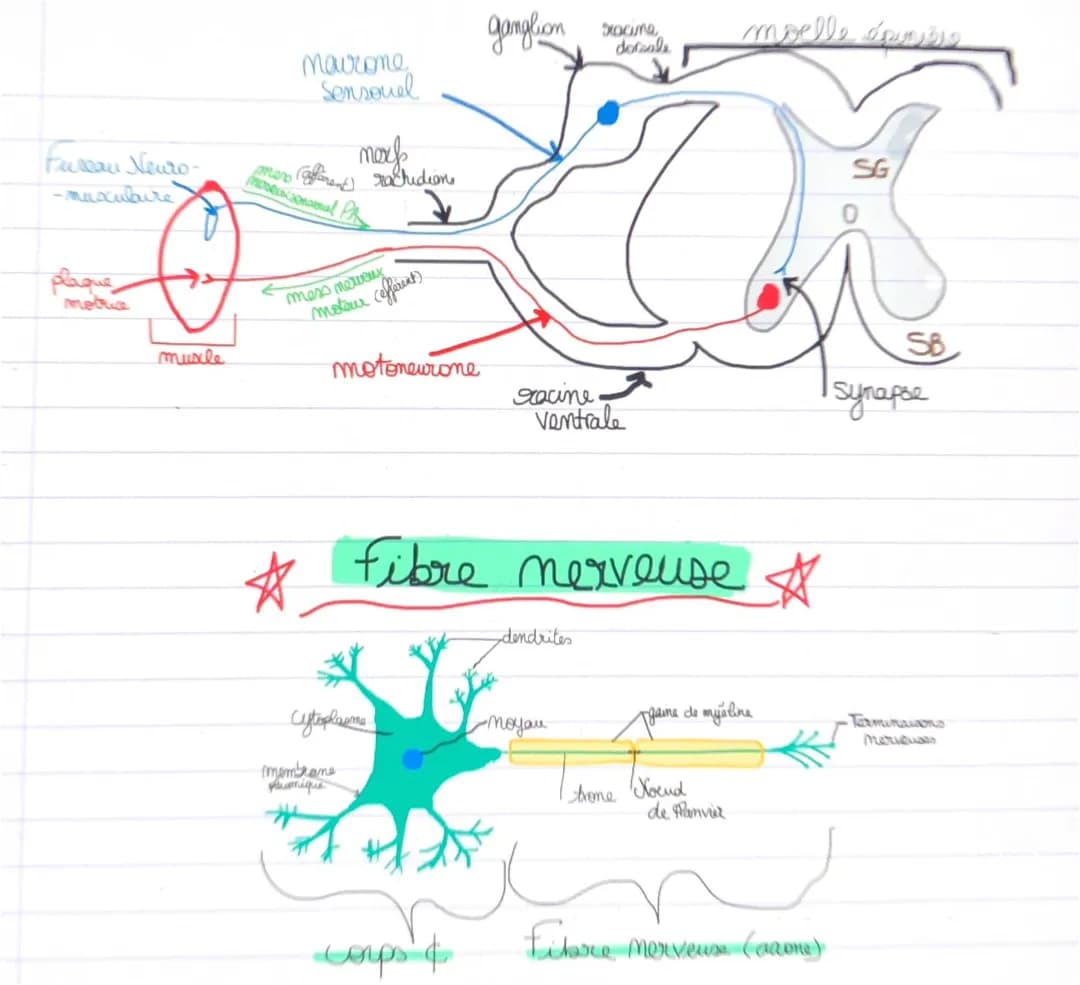 ganglion
racine
dorsale
moelle épinière
neurone
sensoriel
nerfs
rachidiens
Fuseau Neuro-
-musculaire
mess (afférent)
nerveux sensoriel PA
SG
plaque
motrice
mess nerveux
moteur (efférent)
muscle
motoneurone
SB
racine
ventrale
synapse
Fibre nerveuse
dendrites
cytoplasme
noyau
gaine de myéline
Terminaisons
nerveuses
membrane
Axone
Noeud
de Ranvier
corps ¢
Fibre nerveuse (axone)